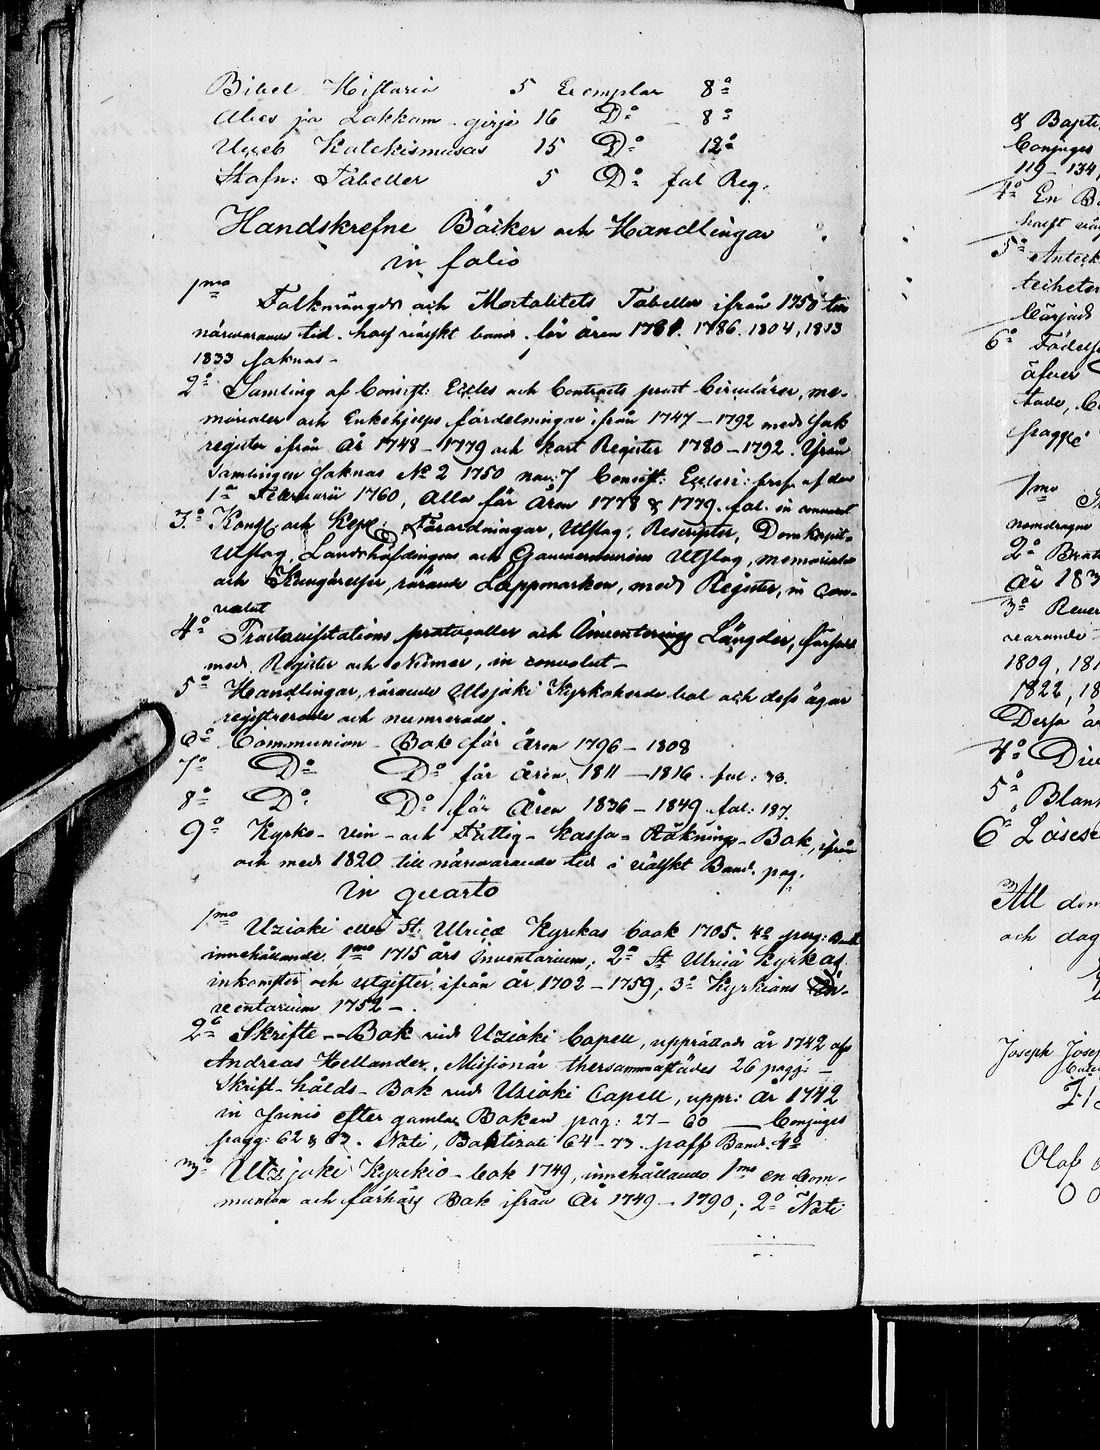 Bibel Historia 5 Exemplar 8º
Abes ja Lokkam girje 16 Dº 8º
Uцceb Katekismusas 15 Dº 12º
Stafn: Tabeller 5 Dº fol Reg.
Handskrefne Böcker och Handlingar
in folio
1mo Folkmängds och Mortalitets Tabeller ifrån 1750 till
närvarande tid. half räiskt band. för åren 1781. 1786. 1804, 1813
1833 saknas -
2º Samling af Consist: Eccles och Contracts prost Circulärer, me-
morialer och Enkehjelps fördelningar ifrån 1747 - 1792 med Sak
register ifrån År 1748 - 1779 och kort Register 1780 - 1792. Ifrån
Samlingen saknas Nº 2 1750 Consist: Eccles: af den
1a Februarii 1760, Alla för åren 1778 & 1779. fol. in convolut
3º Kongl. och Förordningar, Utslag, Rescripter, Domkapit.
Utslag, Landshöfdingens och Gouverneurens Utslag, memorialer
och Kungörelser, rörande Lappmarken, med Register, in con-
volut
4º Prostvisitations protocoller och Inventerings Längder, försedd
med Register och Numer, in convolut -
5º Handlingar, rörande Utsjoki Kyrkoherde bol och dess ägor
registrerade och numrerade.
6º Communion - Bok för Åren 1796 - 1808
7º Dº Dº för Åren 1811 - 1816. fol: 73.
8º Dº Dº för Åren 1836 - 1849. fol: 187.
9º Kyrko - vin - och Fattig - kassa - Räknings - Bok, ifrån
och med 1820 till närvarande tid i välskt Band. pag.
in quarto
1mo Uzioki eller St. Ulricæ Kyrkas book 1705. 4º perg: Band
innehållande 1mo 1715 års Inventarium; 2º St Ulricæ Kyrkas
inkomster och utgifter ifrån år 1702 - 1759; 3º Kyrkians In-
ventarium 1752 -.
2º Skrifte - Bok vid Uzioki Capell, upprättad år 1742 af
Andreas Hellander, Missionär thersammastädes 26 pagg: -
Skrift - hålds - Bok vid Uzioki Capell, uppr: år 1742
in Junio efter gamla Boken pag: 27 - 60 — Conjuges
pagg: 62 & 63. Nati, Baptizati 64 - 73. papp Band. 4º
3º Utsjoki Kyrckio - bok 1749, innehållande 1mo en Com-
munion och förhörs Bok ifrån År 1749 - 1790; 2º Nati
& Bapti
Conjuges
119 - 134,
4º En B
5º Anteck
6º Födelse
1mo
2º
År 183
3º
varande
1809, 181
1822, 18
Dessa är
4º Div
5º Blank
6º Läsese
Att den
och dag
Joseph Josep
Olof